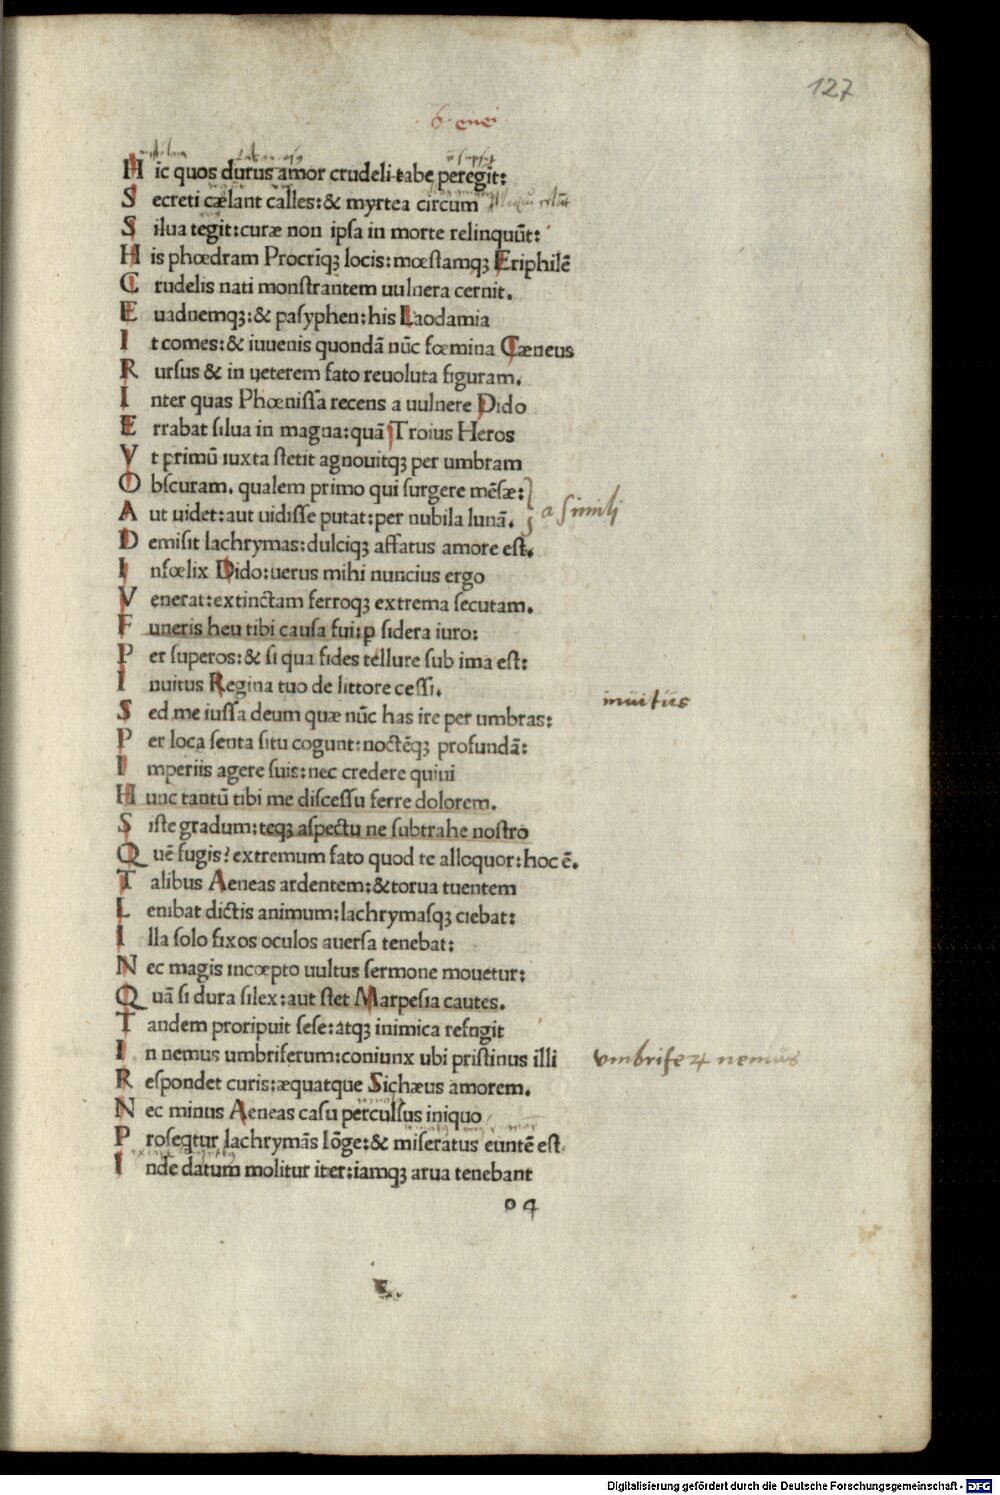 127
6 enei
H ic quos durus amor crudeli tabe peregit:
S ecreti cælant calles: & myrtea circum
S ilua tegit: curæ non ipſa in morte relinquūt:
H is phœdram Procriqꝫ locis: mœſtamqꝫ Eriphilē
C rudelis nati monſtrantem uulnera cernit.
E uadnemqꝫ: & paſyphen: his Laodamia
I t comes: & iuuenis quondā nūc fœmina Cæneus
R urſus & in ueterem fato reuoluta figuram.
I nter quas Phœniſſa recens a uulnere Dido
E rrabat ſilua in magna: quā Troius Heros
V t primū iuxta ſtetit agnouitqꝫ per umbram
O bſcuram. qualem primo qui ſurgere mēſæ:
A ut uidet: aut uidiſſe putat: per nubila lunā. a simili
D emiſit lachrymas: dulciqꝫ affatus amore eſt.
I nfœlix Dido: uerus mihi nuncius ergo
V enerat: extinctam ferroqꝫ extrema ſecutam.
F uneris heu tibi cauſa fui: ꝑ ſidera iuro:
P er ſuperos: & ſi qua fides tellure ſub ima eſt:
I nuitus Regina tuo de littore ceſſi. inuitus
S ed me iuſſa deum quæ nūc has ire per umbras:
P er loca ſenta ſitu cogunt: noctēqꝫ profundā:
I mperiis agere ſuis: nec credere quiui
H unc tantū tibi me diſceſſu ferre dolorem.
S iſte gradum: teqꝫ aſpectu ne ſubtrahe noſtro
Q uē fugis? extremum fato quod te alloquor: hoc ē.
T alibus Aeneas ardentem: & torua tuentem
L enibat dictis animum: lachrymaſqꝫ ciebat:
I lla ſolo fixos oculos auerſa tenebat:
N ec magis incœpto uultus ſermone mouetur:
Q uā ſi dura ſilex: aut ſtet Marpeſia cautes.
T andem proripuit ſeſe: atqꝫ inimica refugit
I n nemus umbriferum: coniunx ubi priſtinus illi vmbriferꝝ nemus
R eſpondet curis: æquatque Sichæus amorem.
N ec minus Aeneas caſu percuſſus iniquo
P roſeqtur lachrymās lōge: & miſeratus euntē eſt
I nde datum molitur iter: iamqꝫ arua tenebant
Digitalisierung gefördert durch die Deutsche Forschungsgemeinschaft - DFG